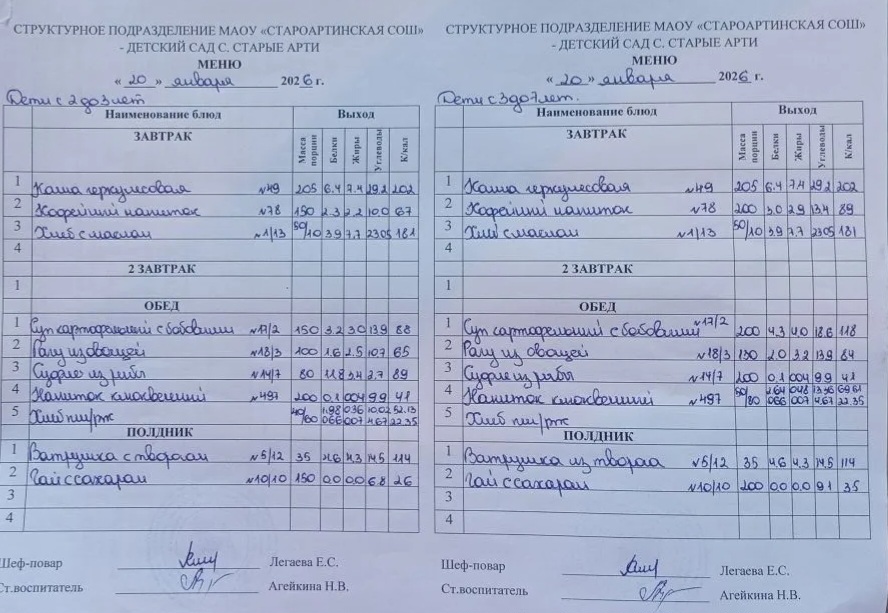 СТРУКТУРНОЕ ПОДРАЗДЕЛЕНИЕ МАОУ «СТАРОАРТИНСКАЯ СОШ»
- ДЕТСКИЙ САД С. СТАРЫЕ АРТИ
МЕНЮ
« 20 » января 2026 г.
Дети с 2 до 3 лет
Наименование блюд Выход
ЗАВТРАК Масса порции Белки Жиры Углеводы К/кал
1 Каша геркулесовая №49 205 6.4 7.4 29.2 202
2 Кофейный напиток №78 150 2.3 2.2 10.0 67
3 Хлеб с маслом №1/13 50/10 3.9 7.7 23.05 181
4
2 ЗАВТРАК
1
ОБЕД
1 Суп картофельный с бобовыми №17/2 150 3.2 3.0 13.9 88
2 Рагу из овощей №18/3 100 1.6 2.5 10.7 65
3 Суфле из рыбы №14/7 80 11.8 3.4 2.7 89
4 Напиток клюквенный №497 200 0.1 0.04 9.9 41
5 Хлеб пш/рж 40/60 1.98 0.36 10.02 52.13
0.66 0.07 4.67 22.35
ПОЛДНИК
1 Ватрушка с творогом №5/12 35 4.6 4.3 14.5 114
2 Чай с сахаром №10/10 150 0.0 0.0 6.8 26
3
4
Шеф-повар Легаева Е.С.
Ст.воспитатель Агейкина Н.В.
СТРУКТУРНОЕ ПОДРАЗДЕЛЕНИЕ МАОУ «СТАРОАРТИНСКАЯ СОШ»
- ДЕТСКИЙ САД С. СТАРЫЕ АРТИ
МЕНЮ
« 20 » января 2026 г.
Дети с 3 до 7 лет.
Наименование блюд Выход
ЗАВТРАК Масса порции Белки Жиры Углеводы К/кал
1 Каша геркулесовая №49 205 6.4 7.4 29.2 202
2 Кофейный напиток №78 200 3.0 2.9 13.4 89
3 Хлеб с маслом №1/13 50/10 3.9 7.7 23.05 181
4
2 ЗАВТРАК
1
ОБЕД
1 Суп картофельный с бобовыми №17/2 200 4.3 4.0 18.6 118
2 Рагу из овощей №18/3 130 2.0 3.2 13.9 84
3 Суфле из рыбы №14/7 200 0.1 0.04 9.9 41
4 Напиток клюквенный №497 50/80 2.64 0.48 13.36 69.61
0.66 0.07 4.67 22.35
5 Хлеб пш/рж
ПОЛДНИК
1 Ватрушка из творога №5/12 35 4.6 4.3 14.5 114
2 Чай с сахаром №10/10 200 0.0 0.0 9.1 35
3
4
Шеф-повар Легаева Е.С.
Ст.воспитатель Агейкина Н.В.